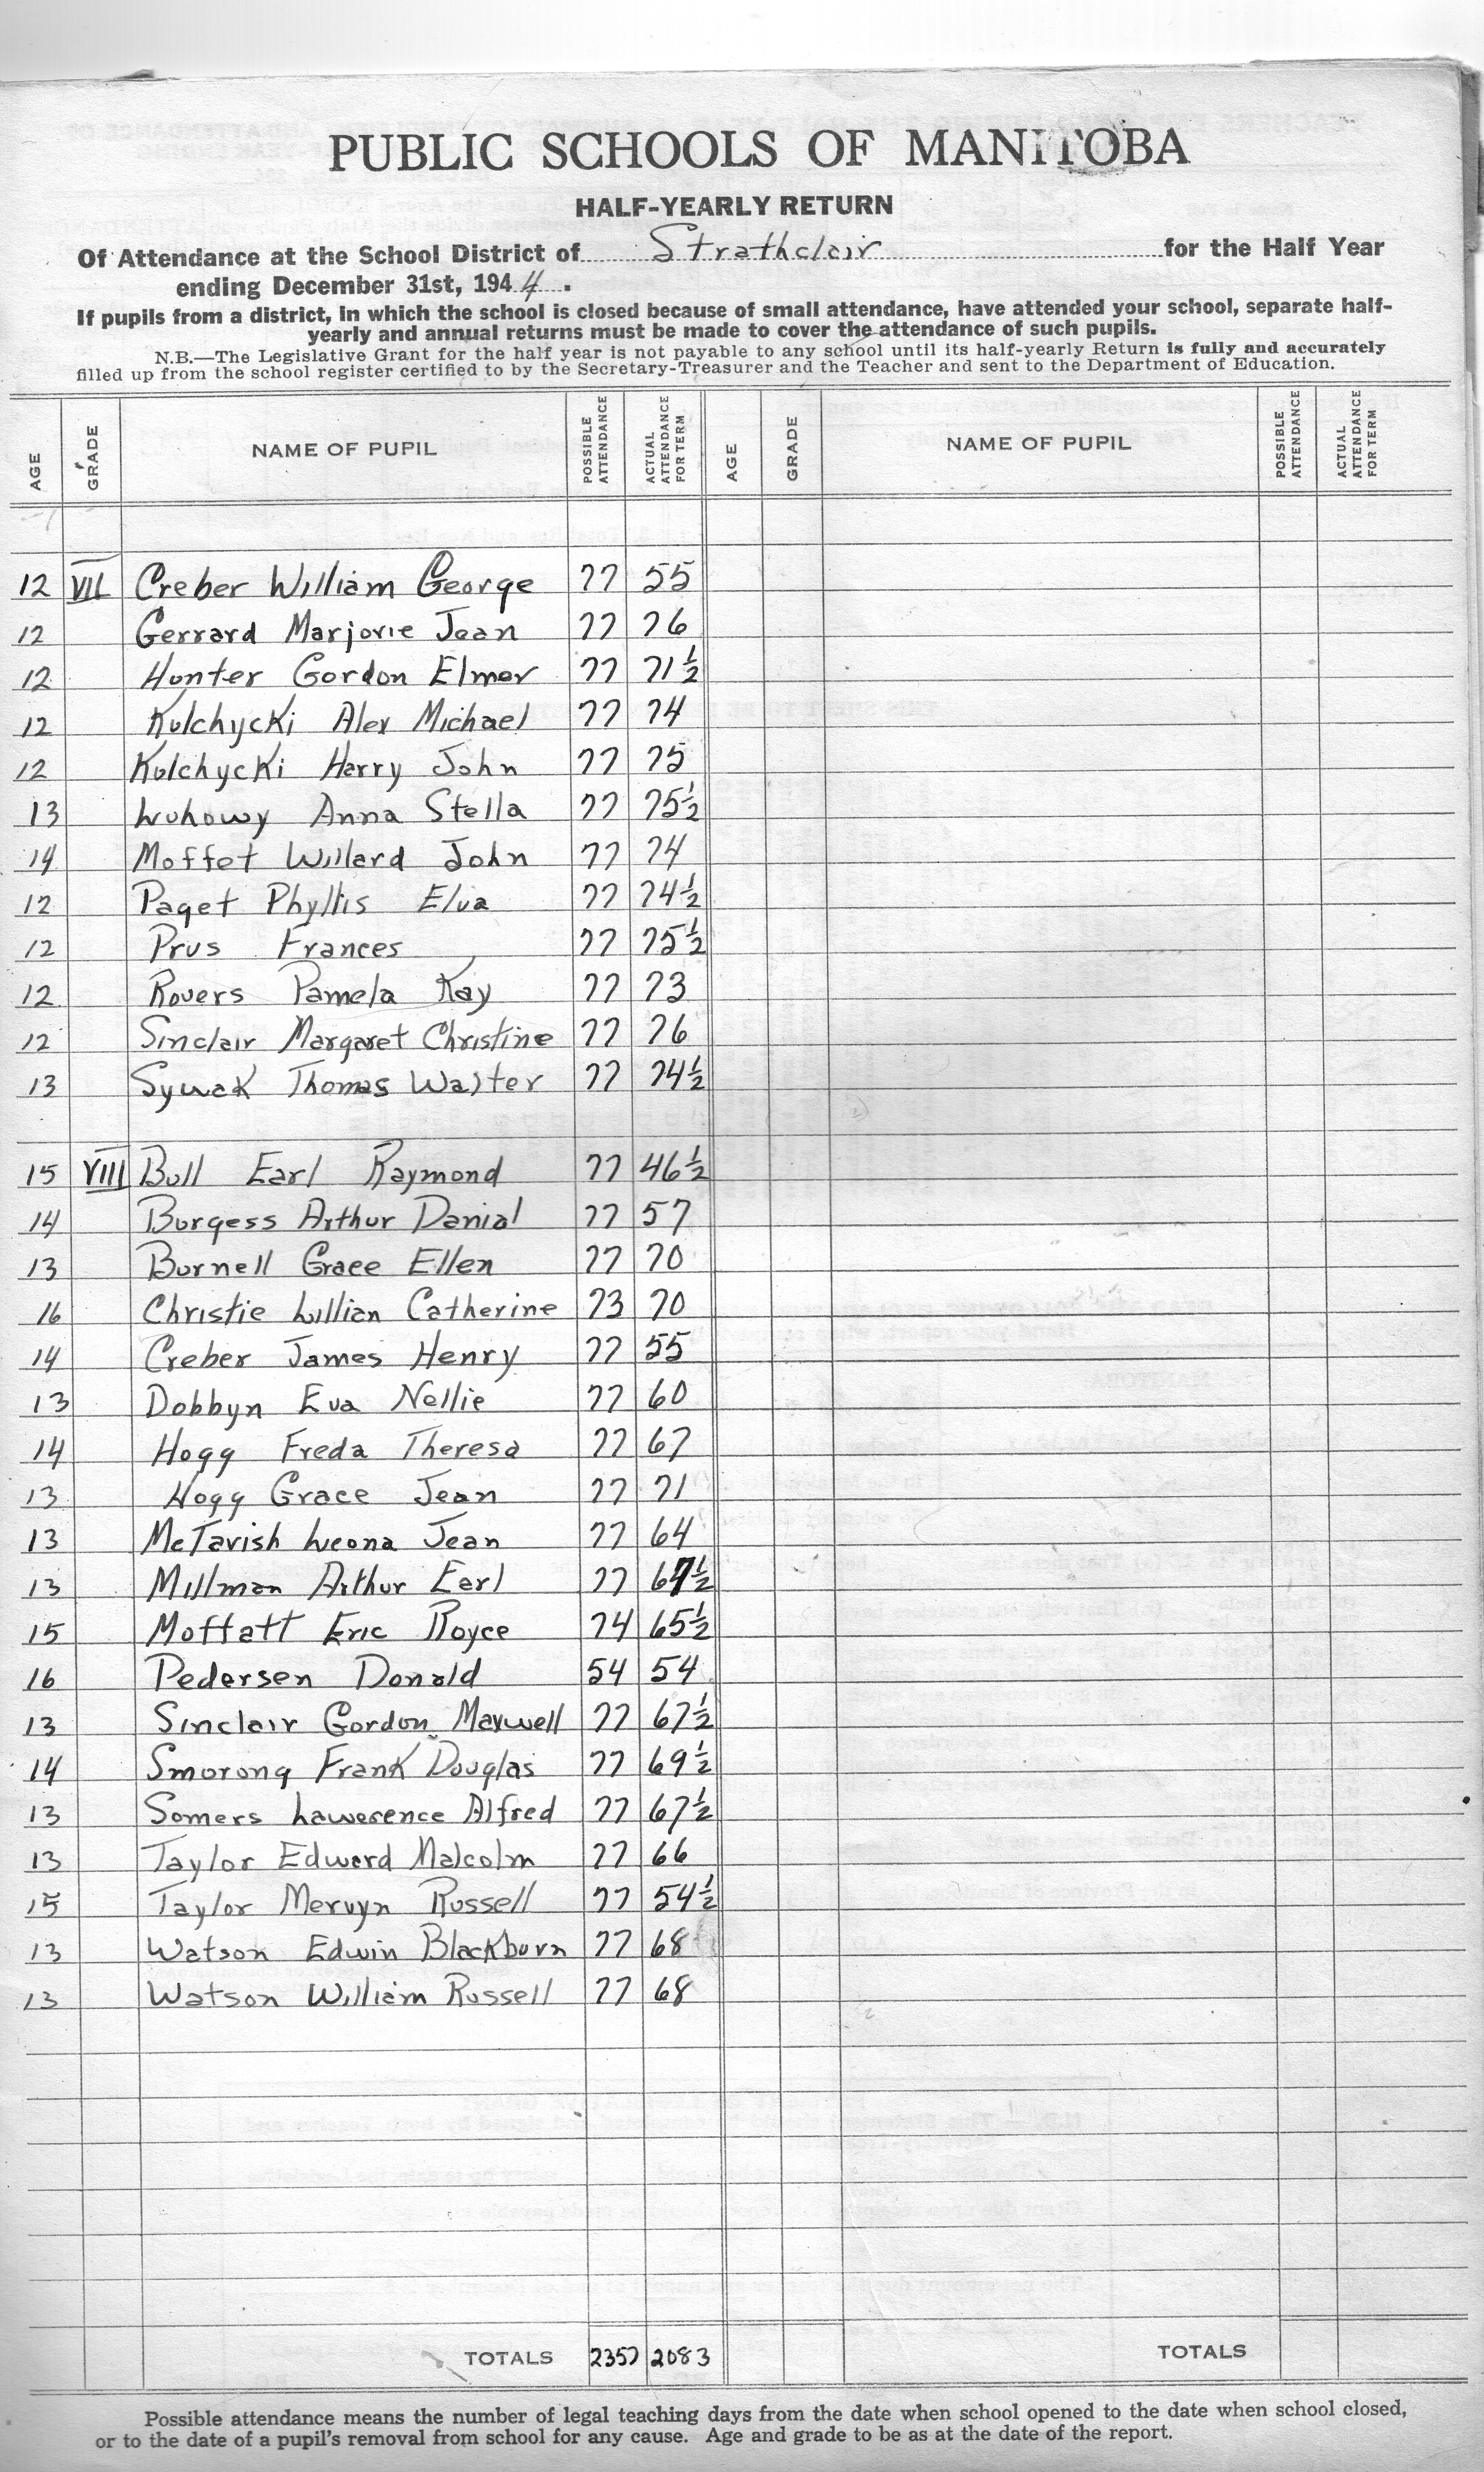 PUBLIC SCHOOLS OF MANITOBA
HALF-YEARLY RETURN
Of Attendance at the School District of Strathclair for the Half Year
ending December 31st, 1944.
If pupils from a district, in which the school is closed because of small attendance, have attended your school, separate half-
yearly and annual returns must be made to cover the attendance of such pupils.
N.B.—The Legislative Grant for the half year is not payable to any school until its half-yearly Return is fully and accurately
filled up from the school register certified to by the Secretary-Treasurer and the Teacher and sent to the Department of Education.
AGE GRADE NAME OF PUPIL POSSIBLE ATTENDANCE ACTUAL ATTENDANCE FOR TERM AGE GRADE NAME OF PUPIL POSSIBLE ATTENDANCE ACTUAL ATTENDANCE FOR TERM
12 VII Creber William George 77 55
12 Gerrard Marjorie Jean 77 76
12 Hunter Gordon Elmer 77 71½
12 Kulchycki Alex Michael 77 74
12 Kulchycki Harry John 77 75
13 Luhowy Anna Stella 77 75½
14 Moffet Willard John 77 74
12 Paget Phyllis Elva 77 74½
12 Prus Frances 77 75½
12 Rovers Pamela Kay 77 73
12 Sinclair Margaret Christine 77 76
13 Sywak Thomas Walter 77 74½
15 VIII Bull Earl Raymond 77 46½
14 Burgess Arthur Danial 77 57
13 Burnell Grace Ellen 77 70
16 Christie Lillian Catherine 73 70
14 Creber James Henry 77 55
13 Dobbyn Eva Nellie 77 60
14 Hogg Freda Theresa 77 67
13 Hogg Grace Jean 77 71
13 McTavish Leona Jean 77 64
13 Millman Arthur Earl 77 67½
15 Moffatt Eric Royce 74 65½
16 Pedersen Donald 54 54
13 Sinclair Gordon Maxwell 77 67½
14 Smorong Frank Douglas 77 69½
13 Somers Lawerence Alfred 77 67½
13 Taylor Edward Malcolm 77 66
15 Taylor Mervyn Russell 77 54½
13 Watson Edwin Blackburn 77 68
13 Watson William Russell 77 68
TOTALS 2357 2083 TOTALS
Possible attendance means the number of legal teaching days from the date when school opened to the date when school closed,
or to the date of a pupil's removal from school for any cause. Age and grade to be as at the date of the report.